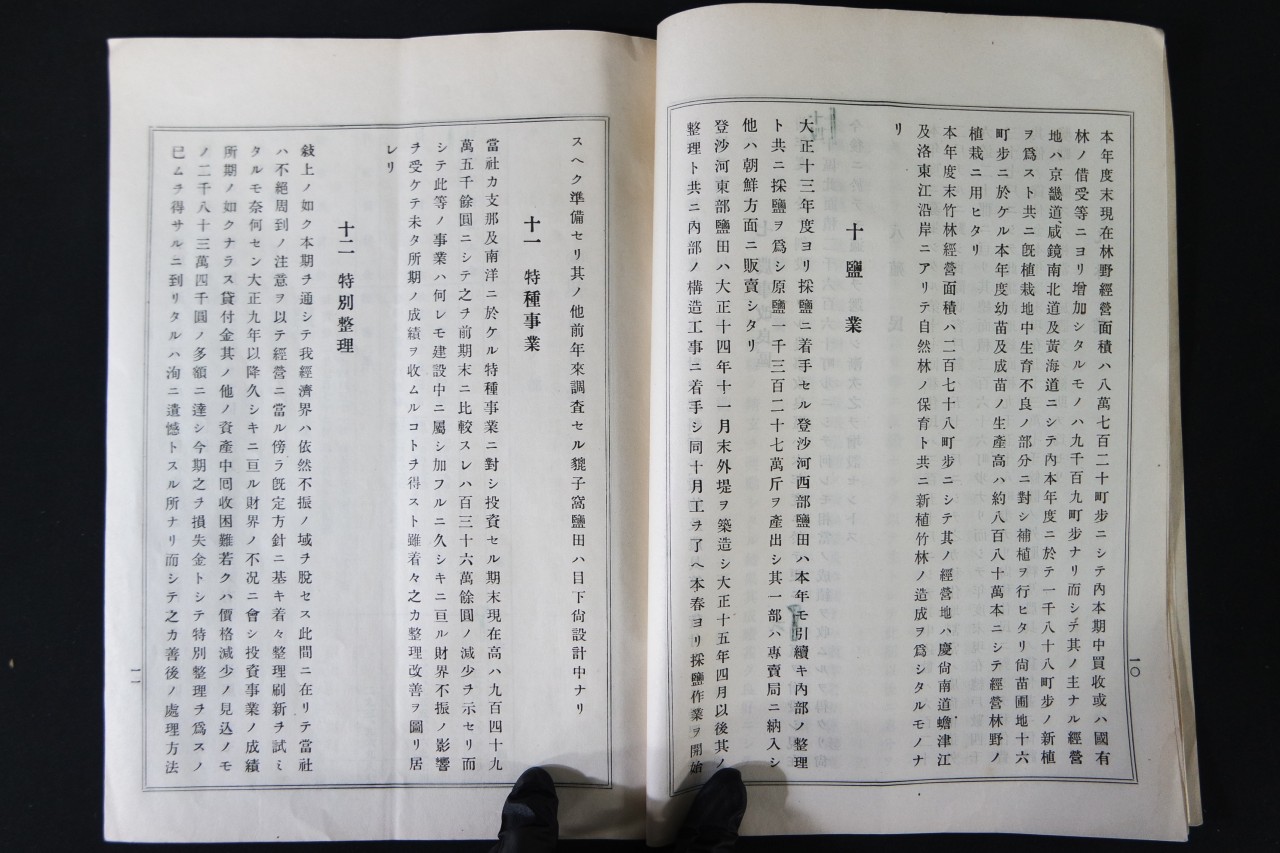 本年度末現在林野經營面積ハ八萬七百二十町步ニシテ內本期中買收或ハ國有
林ノ借受等ニヨリ增加シタルモノハ九千百九町步ナリ而シテ其ノ主ナル經營
地ハ京畿道、咸鏡南北道及黃海道ニシテ內本年度ニ於テ一千八十八町步ノ新植
ヲ爲スト共ニ旣植栽地中生育不良ノ部分ニ對シ補植ヲ行ヒタリ尙苗圃地十六
町步ニ於ケル本年度幼苗及成苗ノ生產高ハ約八百八十萬本ニシテ經營林野ノ
植栽ニ用ヒタリ
本年度末竹林經營面積ハ二百七十八町步ニシテ其ノ經營地ハ慶尙南道蟾津江
及洛東江沿岸ニアリテ自然林ノ保育ト共ニ新植竹林ノ造成ヲ爲シタルモノナ
リ
十 鹽業
大正十三年度ヨリ採鹽ニ着手セル登沙河西部鹽田ハ本年モ引續キ內部ノ整理
ト共ニ採鹽ヲ爲シ原鹽一千三百二十七萬斤ヲ產出シ其一部ハ專賣局ニ納入シ
他ハ朝鮮方面ニ販賣シタリ
登沙河東部鹽田ハ大正十四年十一月末外堤ヲ築造シ大正十五年四月以後其ノ
整理ト共ニ內部ノ構造工事ニ着手シ同十月工ヲ了ヘ本春ヨリ採鹽作業ヲ開始
一〇
スヘク準備セリ其ノ他前年來調査セル貔子窩鹽田ハ目下尙設計中ナリ
十一 特種事業
當社カ支那及南洋ニ於ケル特種事業ニ對シ投資セル期末現在高ハ九百四十九
萬五千餘圓ニシテ之ヲ前期末ニ比較スレハ百三十六萬餘圓ノ減少ヲ示セリ而
シテ此等ノ事業ハ何レモ建設中ニ屬シ加フルニ久シキニ亘ル財界不振ノ影響
ヲ受ケテ未タ所期ノ成績ヲ收ムルコトヲ得スト雖着々之カ整理改善ヲ圖リ居
レリ
十二 特別整理
敍上ノ如ク本期ヲ通シテ我經濟界ハ依然不振ノ域ヲ脫セス此間ニ在リテ當社
ハ不絕周到ノ注意ヲ以テ經營ニ當ル傍ラ旣定方針ニ基キ着々整理刷新ヲ試ミ
タルモ奈何セン大正九年以降久シキニ亘ル財界ノ不況ニ會シ投資事業ノ成績
所期ノ如クナラス貸付金其ノ他ノ資產中囘收困難若クハ價格減少ノ見込ノモ
ノ二千八十三萬四千圓ノ多額ニ達シ今期之ヲ損失金トシテ特別整理ヲ爲スノ
已ムヲ得サルニ到リタルハ洵ニ遺憾トスル所ナリ而シテ之カ善後ノ處理方法
一一